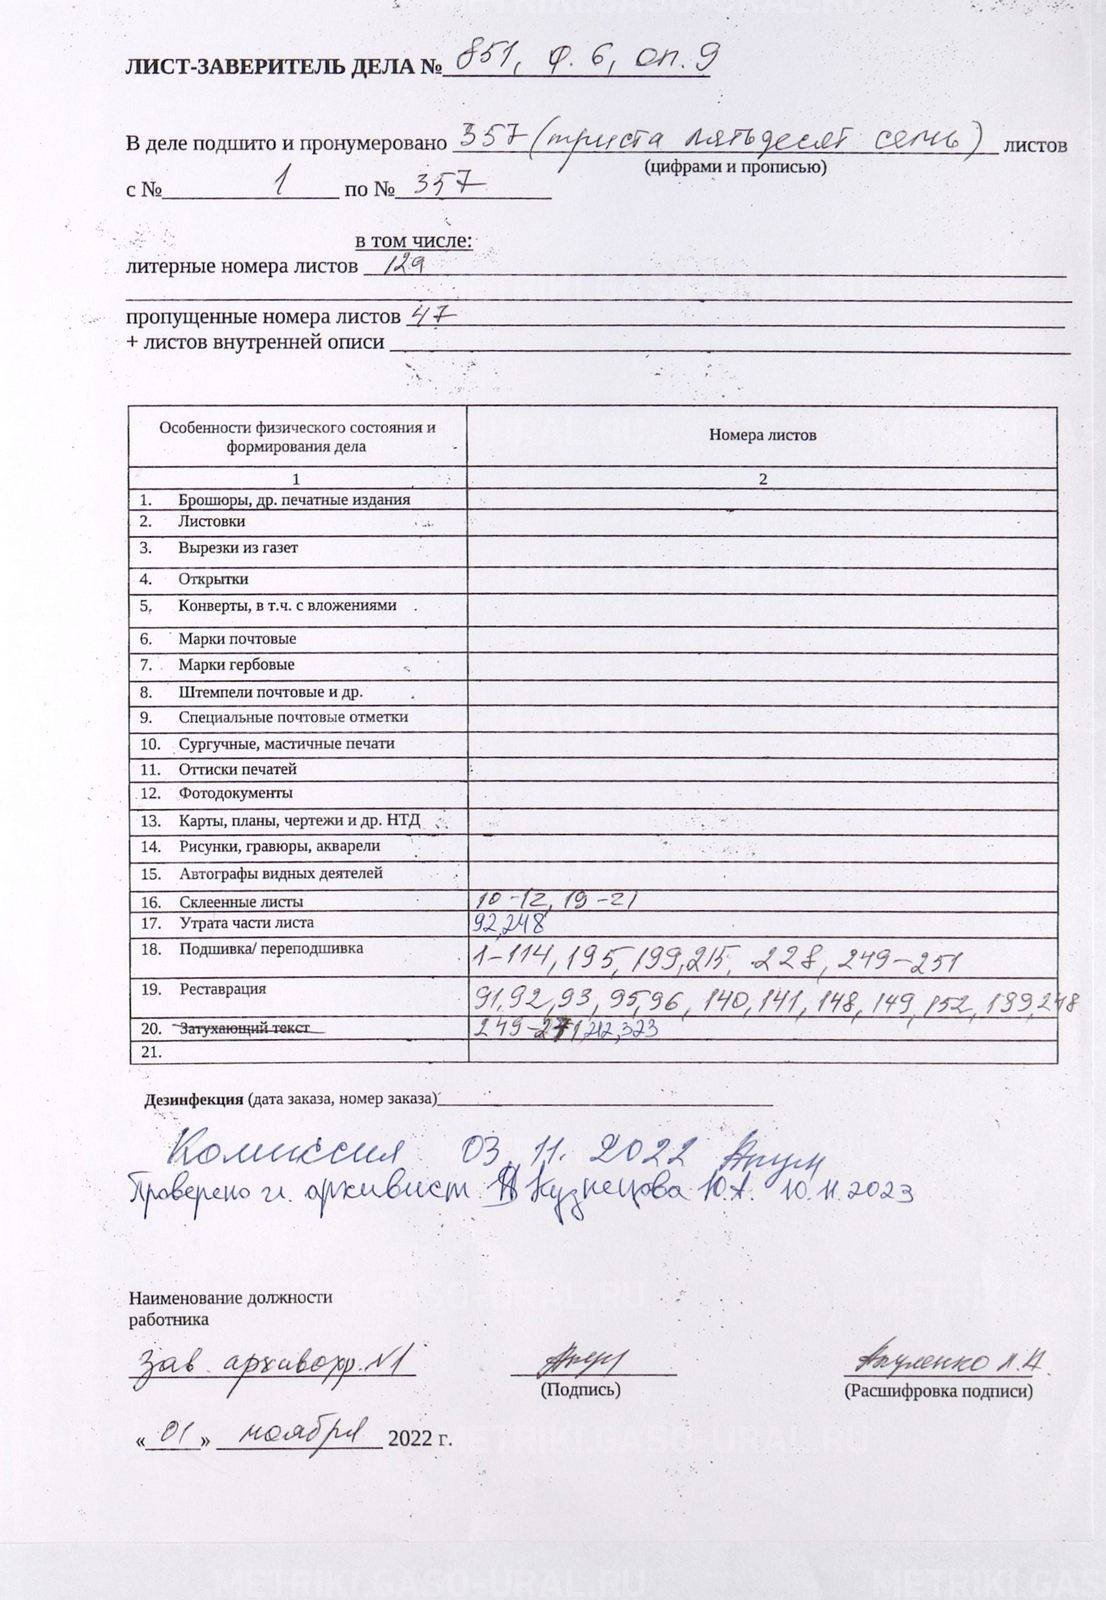 ЛИСТ-ЗАВЕРИТЕЛЬ ДЕЛА № 851, ф. 6, оп. 9
В деле подшито и пронумеровано 357 (триста пятьдесят семь) листов
(цифрами и прописью)
с № 1 по № 357
в том числе:
литерные номера листов 129
пропущенные номера листов 47
+ листов внутренней описи
Особенности физического состояния и формирования дела Номера листов
1 2
1. Брошюры, др. печатные издания
2. Листовки
3. Вырезки из газет
4. Открытки
5. Конверты, в т.ч. с вложениями
6. Марки почтовые
7. Марки гербовые
8. Штемпели почтовые и др.
9. Специальные почтовые отметки
10. Сургучные, мастичные печати
11. Оттиски печатей
12. Фотодокументы
13. Карты, планы, чертежи и др. НТД
14. Рисунки, гравюры, акварели
15. Автографы видных деятелей
16. Склеенные листы 10-12, 19-21
17. Утрата части листа 92,248
18. Подшивка/ переподшивка 1-114, 195, 199, 215, 228, 249-251
19. Реставрация 91, 92, 93, 95, 96, 140, 141, 148, 149, 152, 199, 248
20. Затухающий текст 249- 212, 323
21.
Дезинфекция (дата заказа, номер заказа)
Комиссия 03.11.2022
Проверено гл. архивист Кузнецова Ю.А. 10.11.2023
Наименование должности
работника
Зав. архивохр. №1
(Подпись) (Расшифровка подписи)
«01» ноября 2022 г.
METRIKI.GASO-URAL.RU